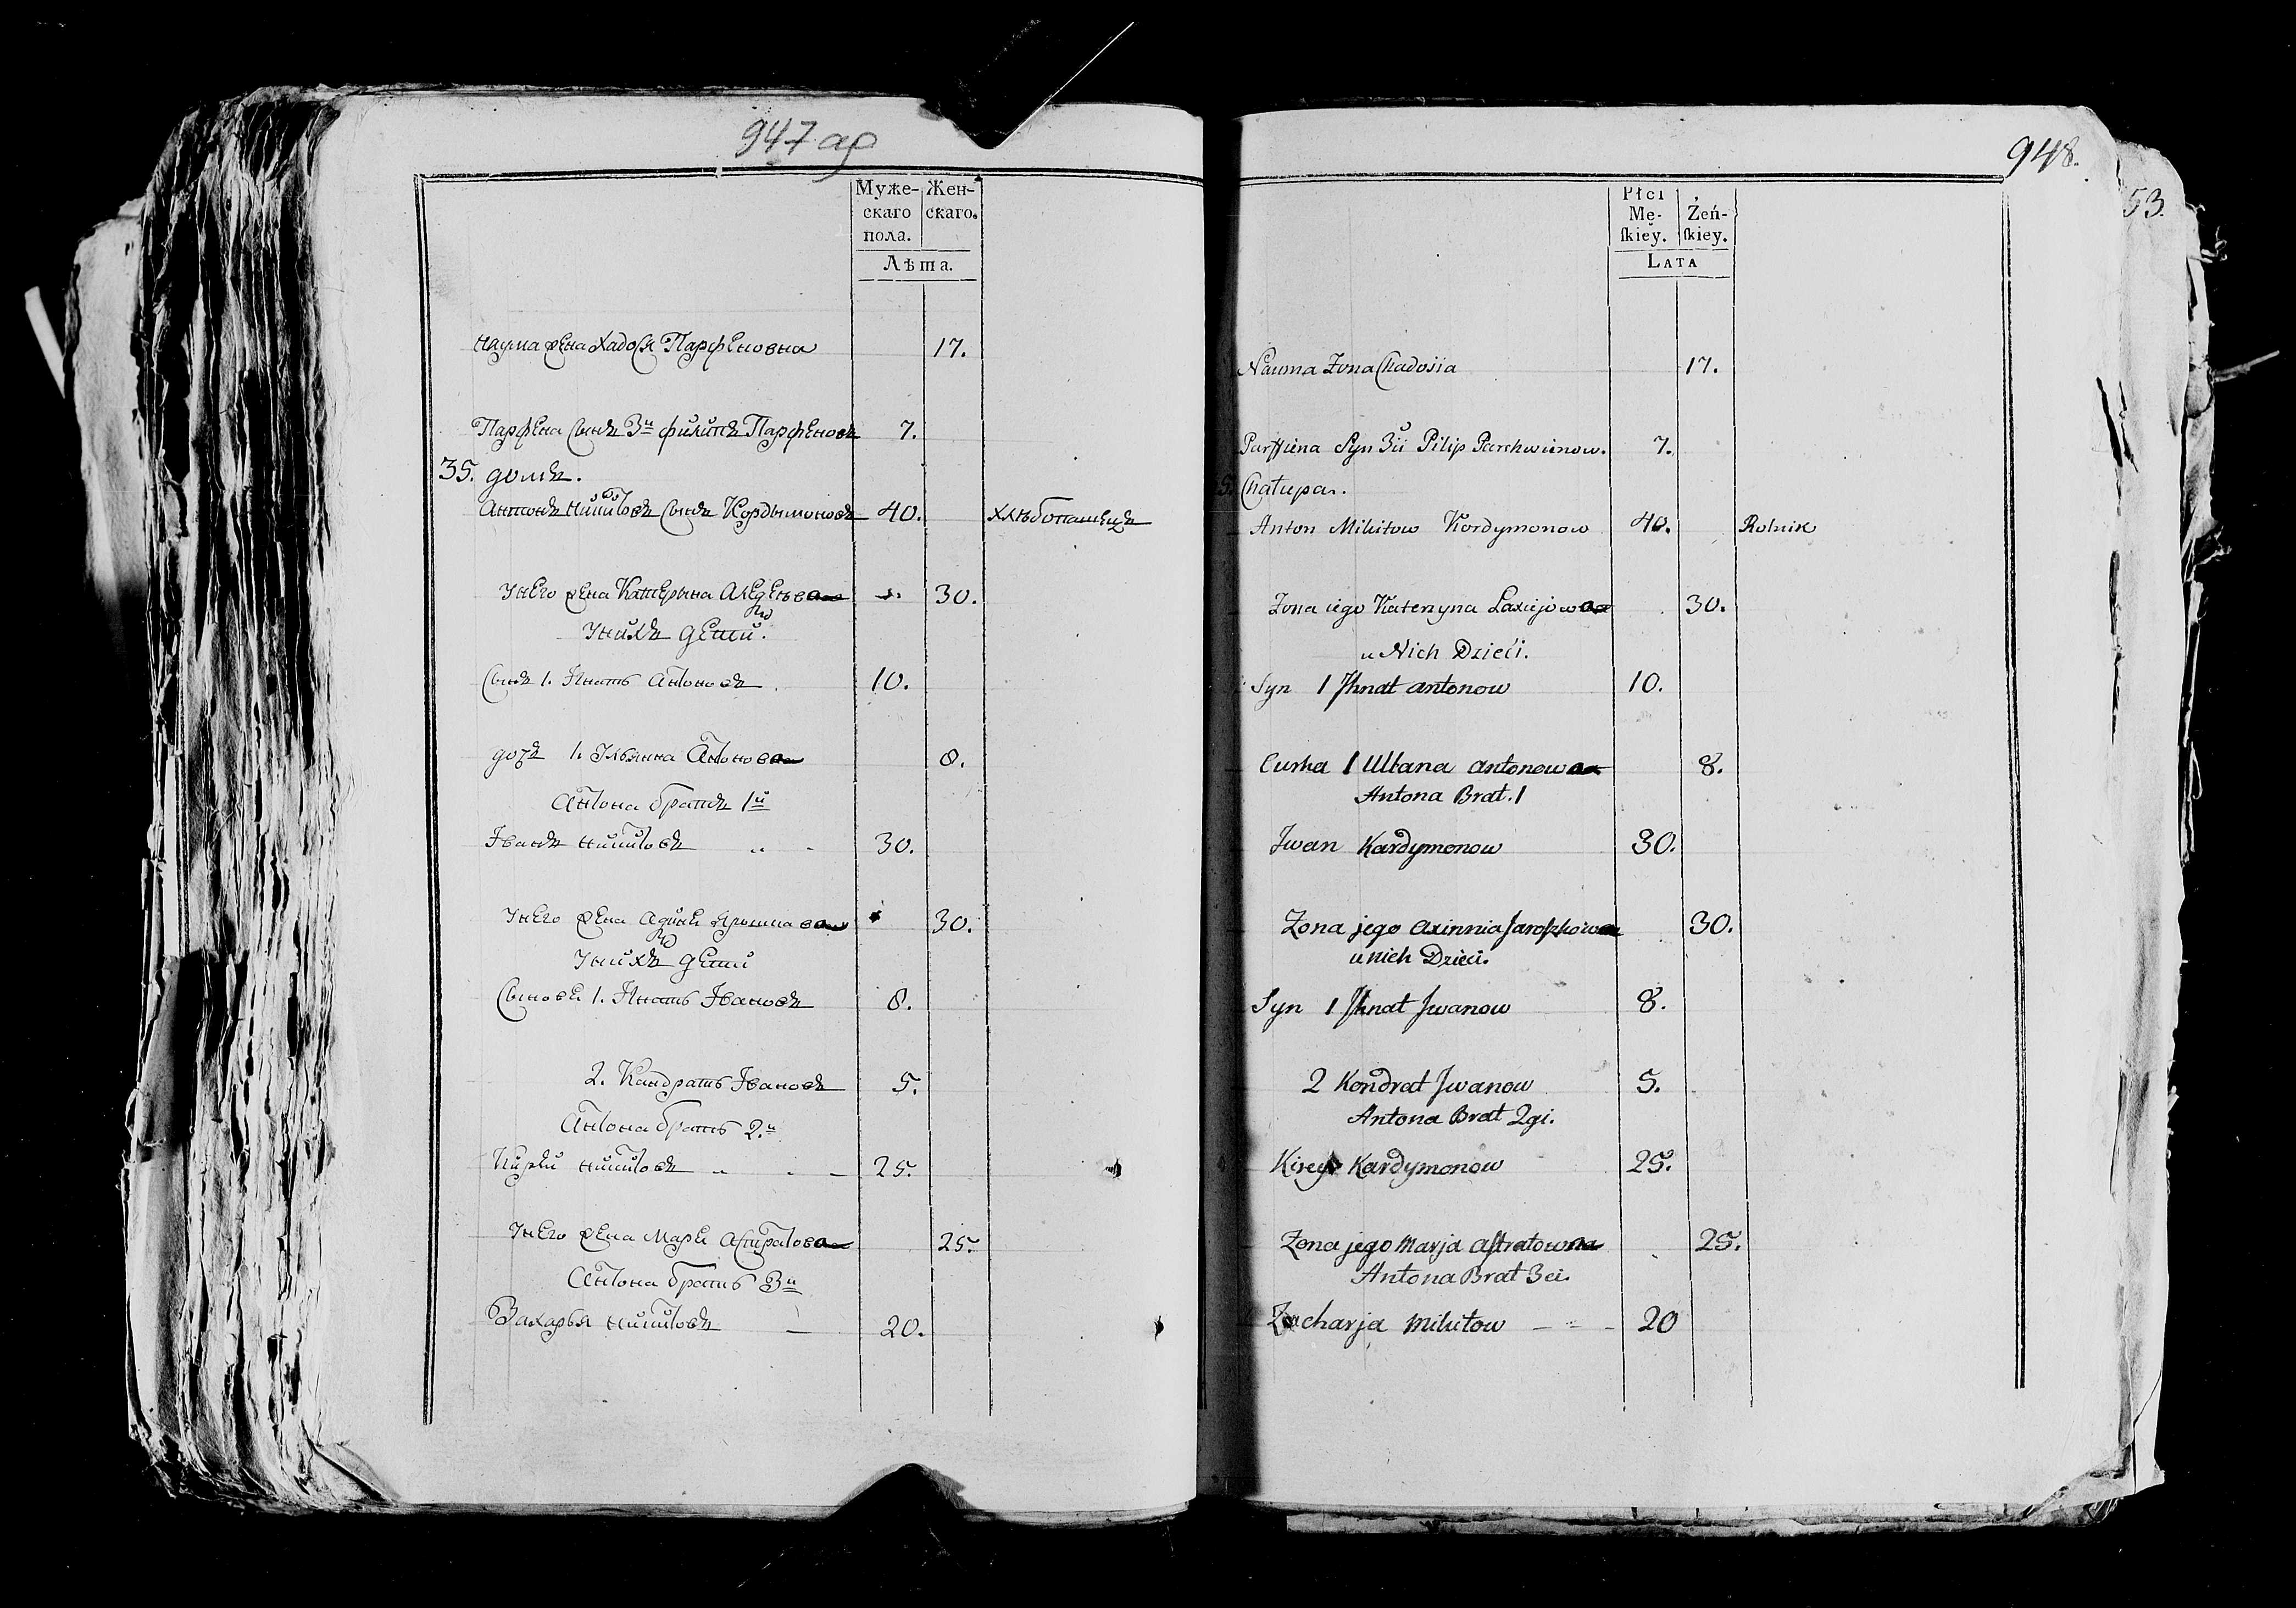 947 ар
Муже- Жен-
скаго скаго.
пола.
Лѣта.
Наума жена Хадося Парфеновна 17.
Парфена сынъ 3й Филипъ Парфеновъ 7.
35. домъ.
Антонъ Никитовъ сынъ Кордымоновъ 40. хлѣбопашецъ
Унего жена Катерына 30.
Унихъ дети.
Сынъ 1. Игнатъ Антоновъ 10.
дочь 1. Ульянна Антонова 8.
Антона братъ 1й
Іванъ Никитовъ 30.
Унего жена 30.
Унихъ дети
Сыновя 1. Игнатъ Івановъ 8.
2. Кандратъ Івановъ 5.
Антона братъ 2.й
Кирѣй Никитовъ 25.
Унего жена Маря Астратова 25.
Антона братъ 3й
Захарья Никитовъ 20.
948.
53.
Płci
Mę- Żeń-
ſkiey. ſkiey.
LATA
Nauma Żona Chadosia 17.
Parffiena Syn 3ii Pilip Parchwienow. 7.
Chałupa.
Anton Mikitow Kordymonow 40. Rolnik
Zona iego Katerzyna 30.
u Nich Dzieći.
Syn 1 Jhnat antonow 10.
Curka 1 Ullana antonowna 8.
Antona Brat. 1
Jwan Kardymonow 30.
Zona jego axinnia Jaroszkowna 30.
u nich Dzieci.
Syn 1 Jhnat Jwanow 8.
2 Kondrat Jwanow 5.
Antona Brat 2gi.
Kirey Kardymonow 25.
Zona jego Marja astratowna 25.
Antona Brat 3ci.
Zacharja Mikitow 20